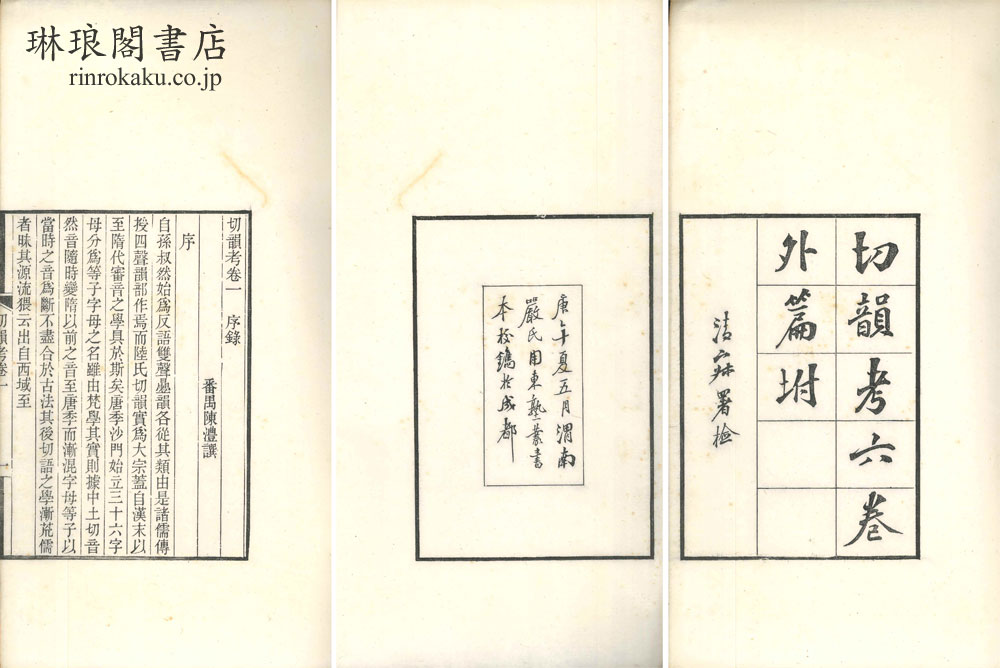 琳琅閣書店
rinrokaku.co.jp
切韻考六卷
外篇坿
清寐署檢
庚午夏五月渭南
嚴氏用東塾叢書
本校鐫於成都
切韻考卷一　序錄
番禺陳澧譔
序
自孫叔然始為反語雙聲疊韻各從其類由是諸儒傳
授四聲韻部作焉而陸氏切韻實為大宗蓋自漢末以
至隋代審音之學具於斯矣唐季沙門始立三十六字
母分為等子字母之名雖由梵學其實則據中土切音
然音隨時變隋以前之音至唐季而漸混字母等子以
當時之音為斷不盡合於古法其後切語之學漸荒儒
者昧其源流猥云出自西域至
切韻考卷一
一